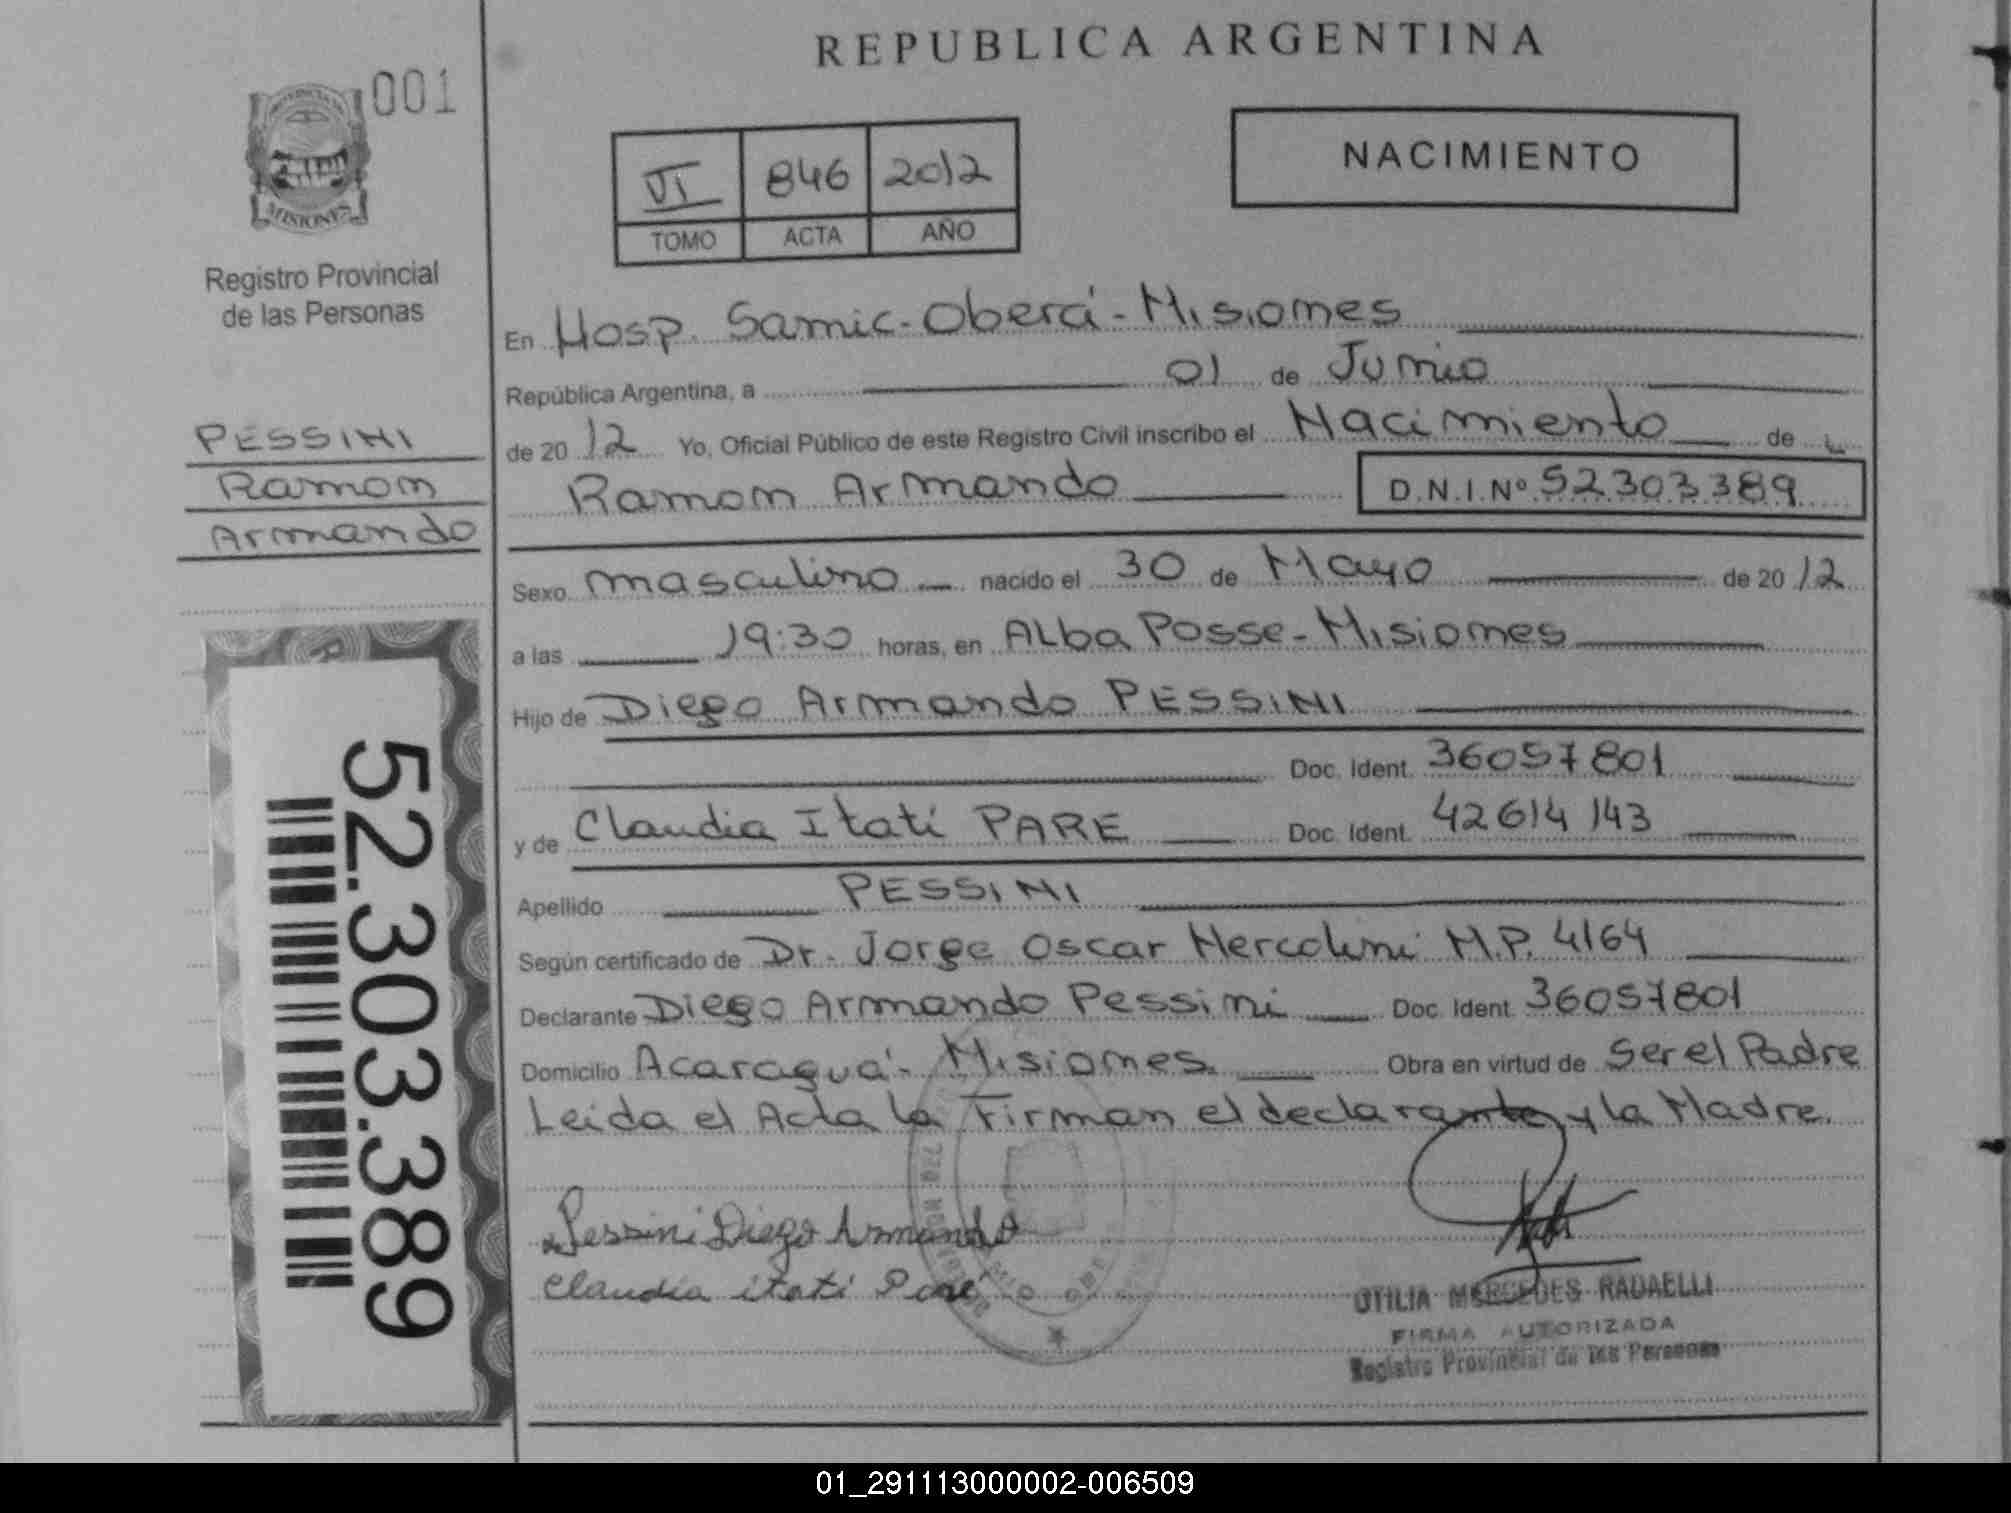 REPUBLICA ARGENTINA
001
PROVINCIA DE
MISIONES
Registro Provincial
de las Personas
VI 846 2012
TOMO ACTA AÑO
NACIMIENTO
En Hosp. Samic - Oberá - Misiones
República Argentina, a 01 de Junio
de 20 12 Yo, Oficial Público de este Registro Civil inscribo el Nacimiento de
Ramon Armando D.N.I.Nº 52303389
PESSINI
Ramon
Armando
Sexo masculino nacido el 30 de Mayo de 20 12
a las 19:30 horas, en Alba Posse - Misiones
Hijo de Diego Armando PESSINI
Doc. Ident. 36057801
y de Claudia Itatí PARE Doc. Ident. 42614143
Apellido PESSINI
Según certificado de Dr. Jorge Oscar Mercolini M.P. 4164
Declarante Diego Armando Pessini Doc. Ident. 36057801
Domicilio Acaraguá - Misiones. Obra en virtud de Ser el Padre
Leida el Acta la Firman el declarante y la Madre.
52.303.389
Pessini Diego Armando
Claudia itati Paré
OTILIA MERCEDES RADAELLI
FIRMA AUTORIZADA
Registro Provincial de las Personas
01_291113000002-006509